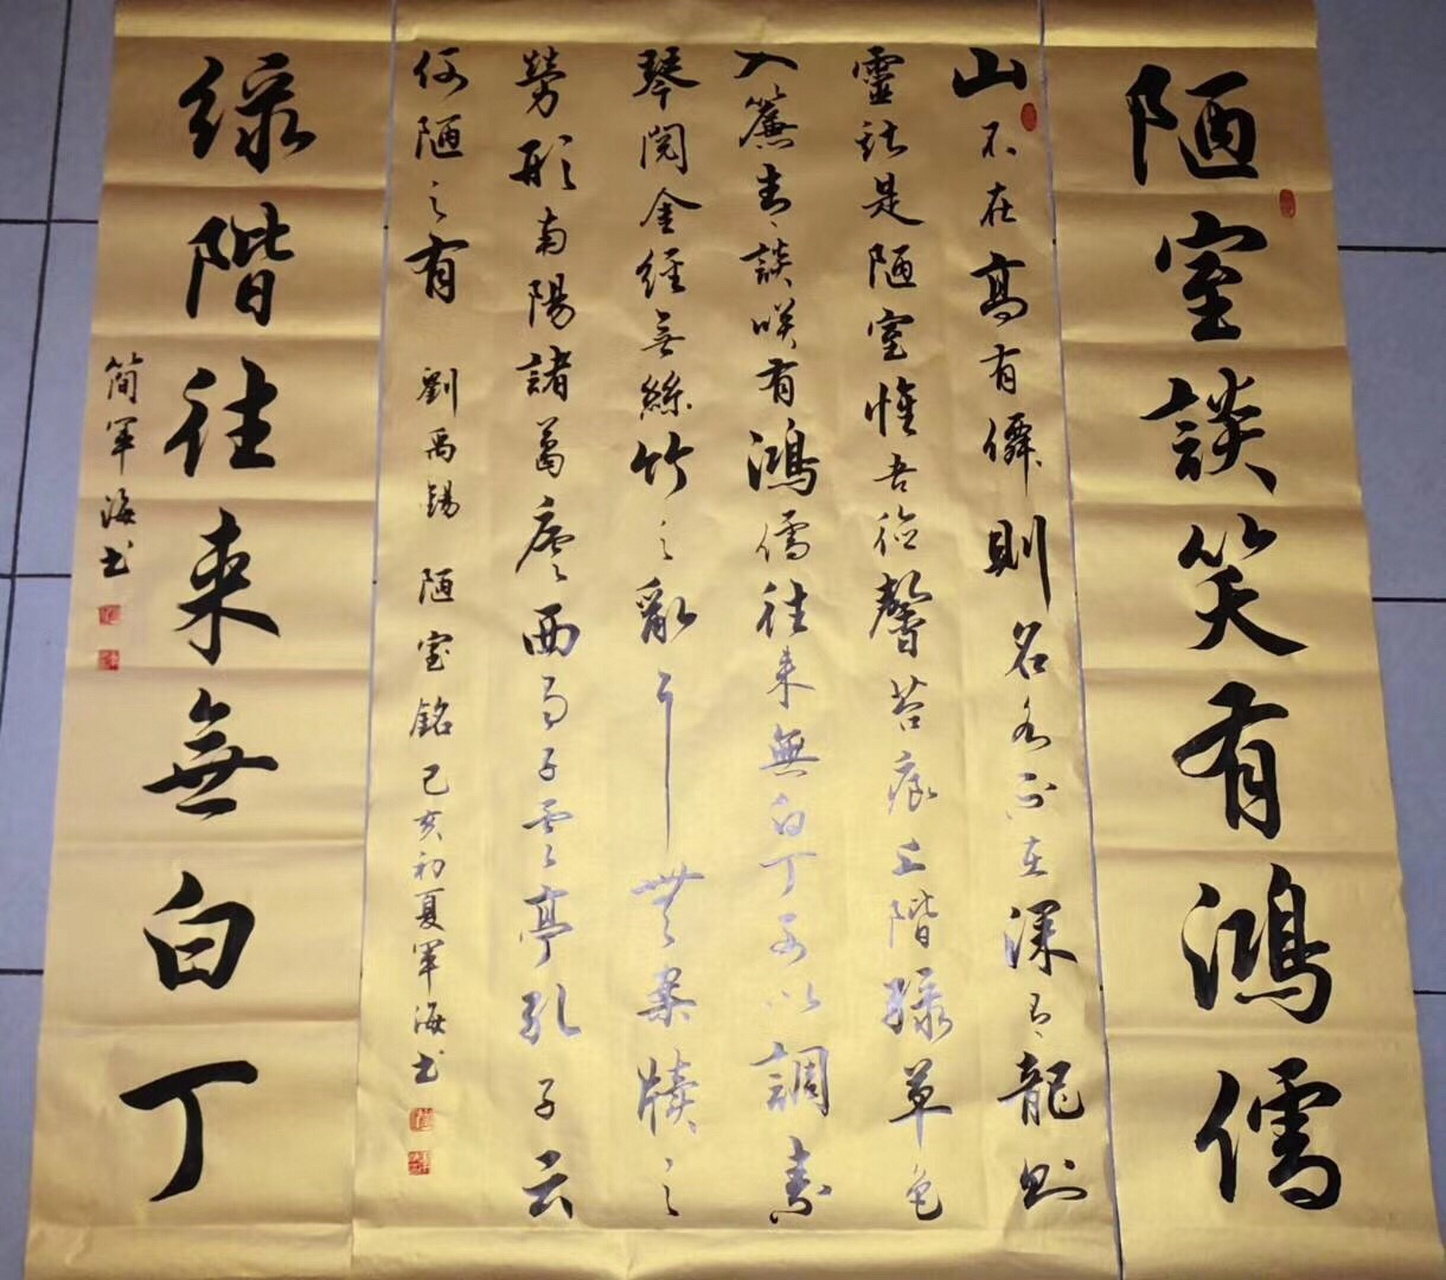 陋室談笑有鴻儒
山不在高有僊則名水不在深有龍則
靈斯是陋室惟吾德馨苔痕上階綠草色
入簾青談咲有鴻儒往来無白丁可以調素
琴閱金經無絲竹之亂耳無案牘之
勞形南陽諸葛廬西蜀子雲亭孔子云
何陋之有 劉禹錫 陋室銘 己亥初夏軍海书
綠階往来無白丁
簡軍海书